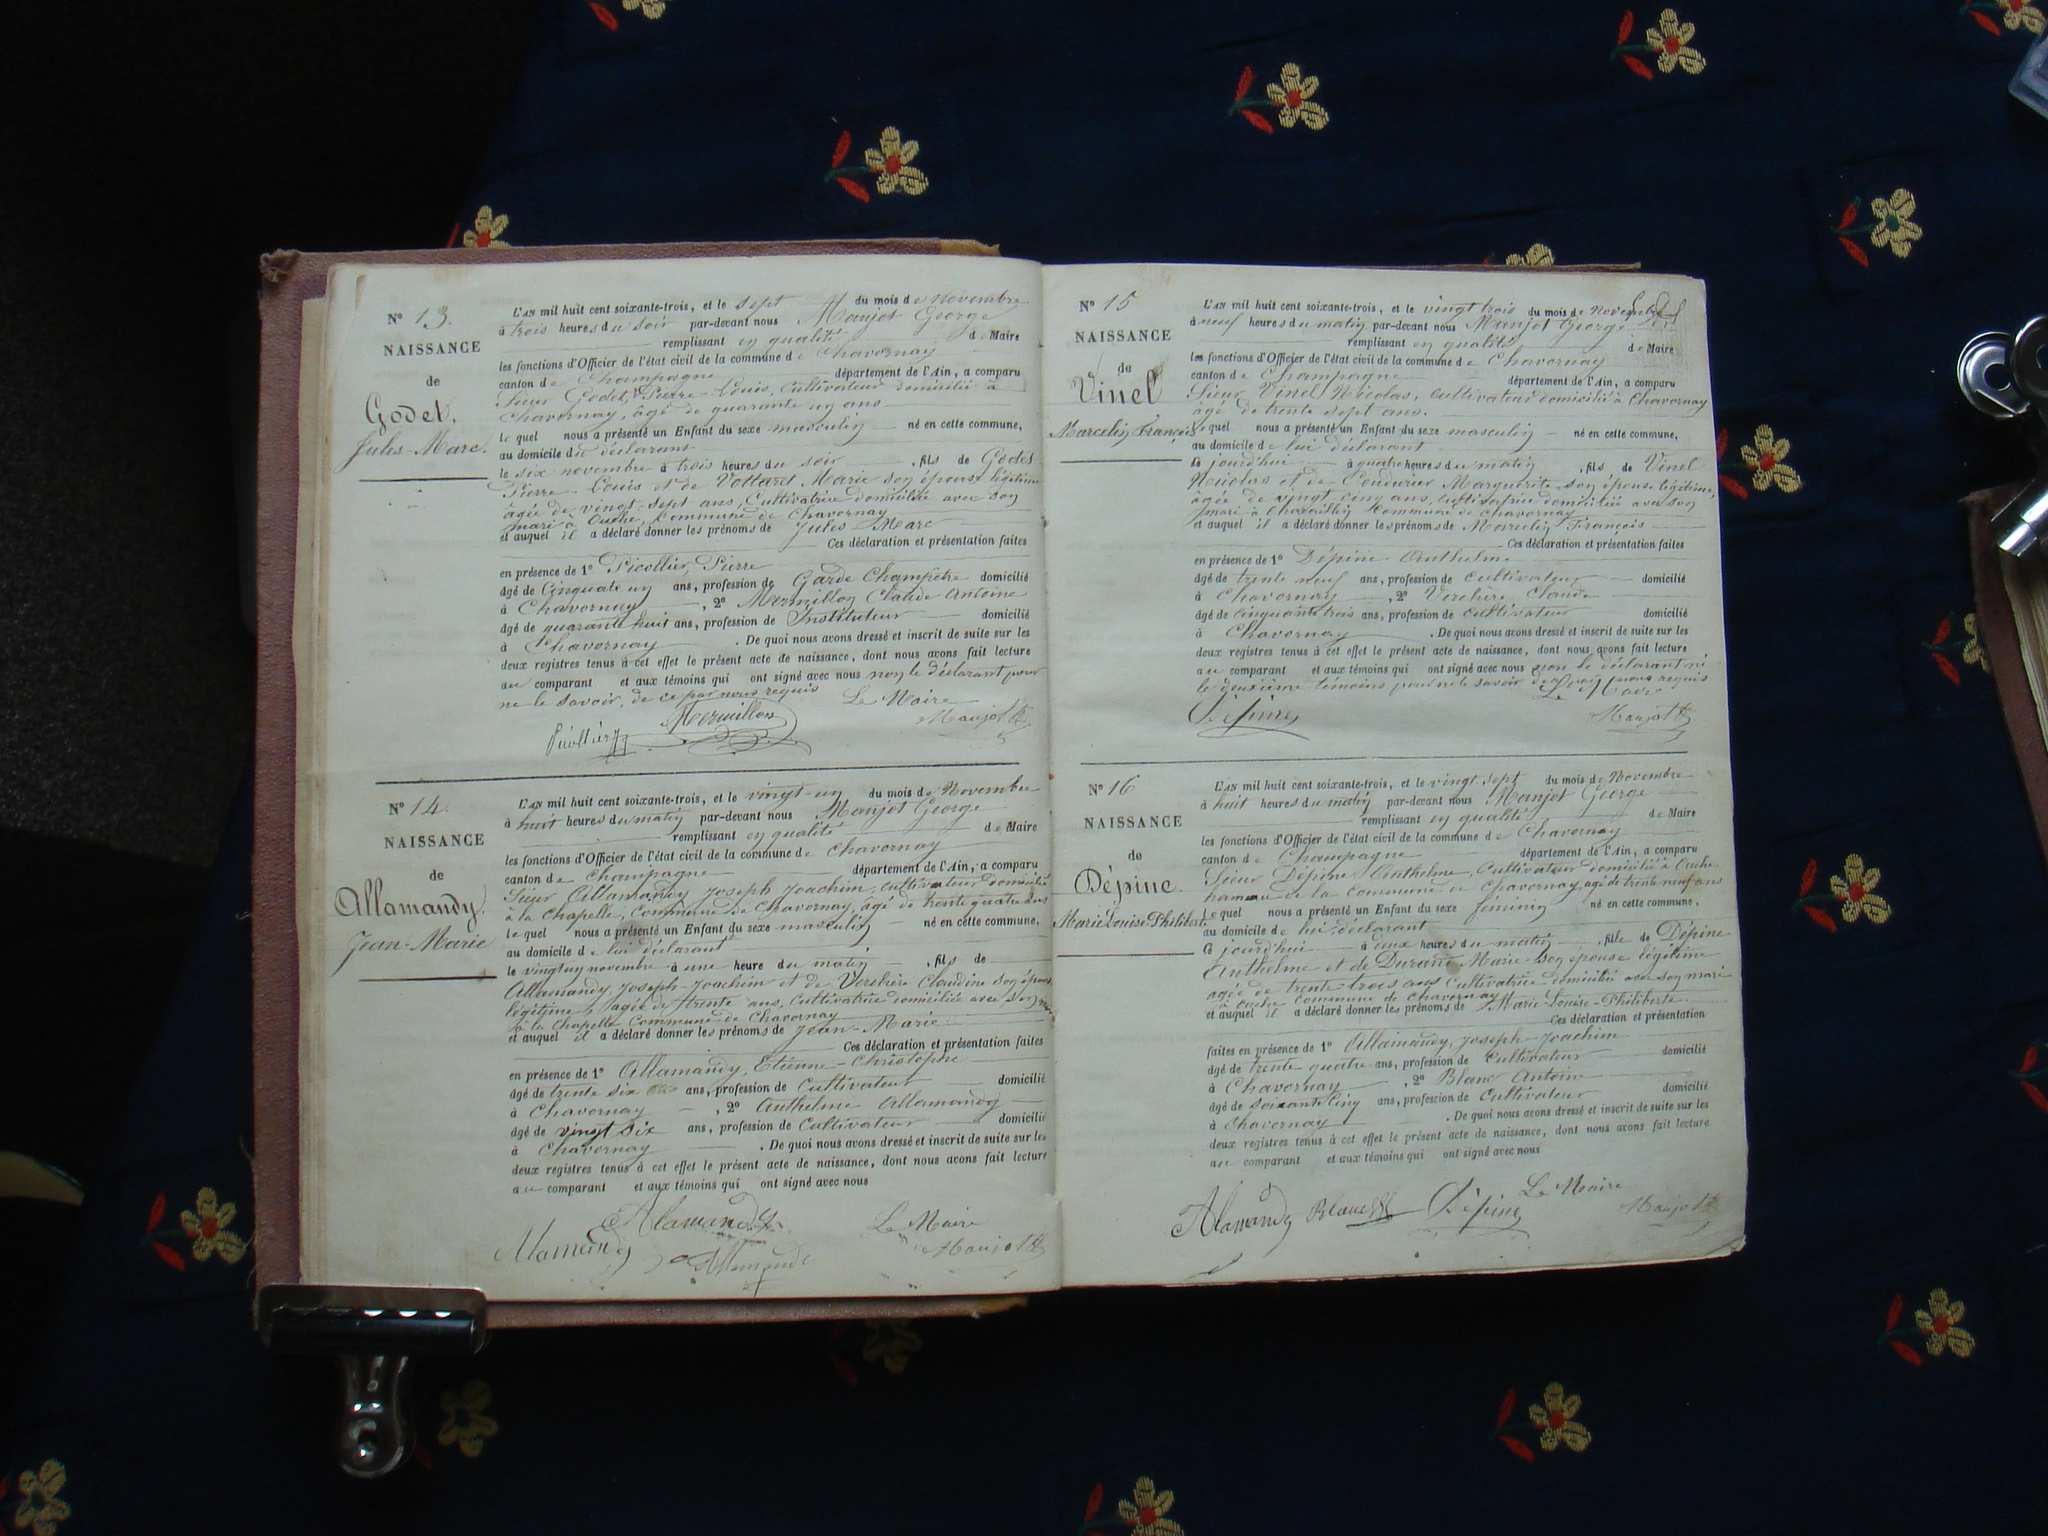 Nº 13.
NAISSANCE
de
Godet,
Jules-Marc.
L'AN mil huit cent soixante-trois, et le sept du mois de Novembre
à trois heures du soir par-devant nous Manjot George
remplissant en qualité de Maire
les fonctions d'Officier de l'état civil de la commune de Chavornay
canton de Champagne département de l'Ain, a comparu
Sieur Godet, Pierre-Louis, Cultivateur domicilié à
Chavornay, âgé de quarante un ans
lequel nous a présenté un Enfant du sexe masculin né en cette commune,
au domicile du déclarant
le six novembre à trois heures du soir, fils de Godet
Pierre-Louis et de Vottaret Marie son épouse légitime
âgée de vingt-sept ans, Cultivatrice domiciliée avec son
mari à Ouche, Commune de Chavornay
et auquel il a déclaré donner les prénoms de Jules Marc
Ces déclaration et présentation faites
en présence de 1º Picollier, Pierre
âgé de Cinquate un ans, profession de Garde Champêtre domicilié
à Chavornay, 2º Mermillon Claude Antoine
âgé de quarante huit ans, profession de Instituteur domicilié
à Chavornay. De quoi nous avons dressé et inscrit de suite sur les
deux registres tenus à cet effet le présent acte de naissance, dont nous avons fait lecture
au comparant et aux témoins qui ont signé avec nous non le déclarant pour
ne le savoir, de ce par nous requis
Le Maire
Mermillon
Manjot
Picollier
Nº 14.
NAISSANCE
de
Allamandy.
Jean-Marie
L'AN mil huit cent soixante-trois, et le vingt-un du mois de Novembre
à huit heures du matin par-devant nous Manjot George
remplissant en qualité de Maire
les fonctions d'Officier de l'état civil de la commune de Chavornay
canton de Champagne département de l'Ain, a comparu
Sieur Allamandy Joseph Joachim, cultivateur domicilié
à la Chapelle, Commune de Chavornay, âgé de trente quatre ans
lequel nous a présenté un Enfant du sexe masculin né en cette commune,
au domicile de lui déclarant
le vingt un novembre à une heure du matin, fils de
Allamandy, Joseph-Joachim et de Verchère Claudine son épouse
légitime, âgée de trente ans, Cultivatrice domiciliée avec son mari
à la Chapelle Commune de Chavornay
et auquel il a déclaré donner les prénoms de Jean-Marie
Ces déclaration et présentation faites
en présence de 1º Allamandy, Etienne-Christophe
âgé de trente six ans, profession de Cultivateur domicilié
à Chavornay, 2º Anthelme Allamandy
âgé de vingt six ans, profession de Cultivateur domicilié
à Chavornay. De quoi nous avons dressé et inscrit de suite sur les
deux registres tenus à cet effet le présent acte de naissance, dont nous avons fait lecture
au comparant et aux témoins qui ont signé avec nous
Alamandy
Le Maire
Manjot
Nº 15
NAISSANCE
de
Vinel
Marcelin François
L'AN mil huit cent soixante-trois, et le vingt trois du mois de Novembre
à neuf heures du matin par-devant nous Manjot George
remplissant en qualité de Maire
les fonctions d'Officier de l'état civil de la commune de Chavornay
canton de Champagne département de l'Ain, a comparu
Sieur Vinel Nicolas, cultivateur domicilié à Chavornay
âgé de trente sept ans.
lequel nous a présenté un Enfant du sexe masculin né en cette commune,
au domicile de lui déclarant
Ce jourd'hui à quatre heures du matin, fils de Vinel
Nicolas et de Couturier Marguerite son épouse légitime,
âgée de vingt cinq ans, cultivatrice domiciliée avec son
mari à Commune de Chavornay
et auquel il a déclaré donner les prénoms de Marcelin François
Ces déclaration et présentation faites
en présence de 1º Dépine Anthelme
âgé de trente neuf ans, profession de Cultivateur domicilié
à Chavornay, 2º Verchère Claude
âgé de cinquante trois ans, profession de Cultivateur domicilié
à Chavornay. De quoi nous avons dressé et inscrit de suite sur les
deux registres tenus à cet effet le présent acte de naissance, dont nous avons fait lecture
au comparant et aux témoins qui ont signé avec nous non le déclarant ni
le deuxième témoins pour ne le savoir de ce par nous requis
Le Maire
Dépine
Manjot
Nº 16
NAISSANCE
de
Dépine.
Marie Louise Philiberte
L'AN mil huit cent soixante-trois, et le vingt sept du mois de Novembre
à huit heures du matin par-devant nous Manjot George
remplissant en qualité de Maire
les fonctions d'Officier de l'état civil de la commune de Chavornay
canton de Champagne département de l'Ain, a comparu
Sieur Dépine Anthelme, Cultivateur domicilié à Ouche
hameau de la Commune de Chavornay, âgé de trente neuf ans
lequel nous a présenté un Enfant du sexe féminin né en cette commune,
au domicile de lui déclarant
Ce jourd'hui à deux heures du matin, fille de Dépine
Anthelme et de Durand Marie son épouse légitime
agée de trente-trois ans Cultivatrice domiciliée avec son mari
à Ouche Commune de Chavornay
et auquel il a déclaré donner les prénoms de Marie-Louise-Philiberte
Ces déclaration et présentation
faites en présence de 1º Allamandy, Joseph-Joachim
âgé de trente quatre ans, profession de Cultivateur domicilié
à Chavornay, 2º Blanc Antoine
âgé de soixante cinq ans, profession de Cultivateur domicilié
à Chavornay. De quoi nous avons dressé et inscrit de suite sur les
deux registres tenus à cet effet le présent acte de naissance, dont nous avons fait lecture
au comparant et aux témoins qui ont signé avec nous
Le Maire
Alamandy Blanc Dépine Manjot